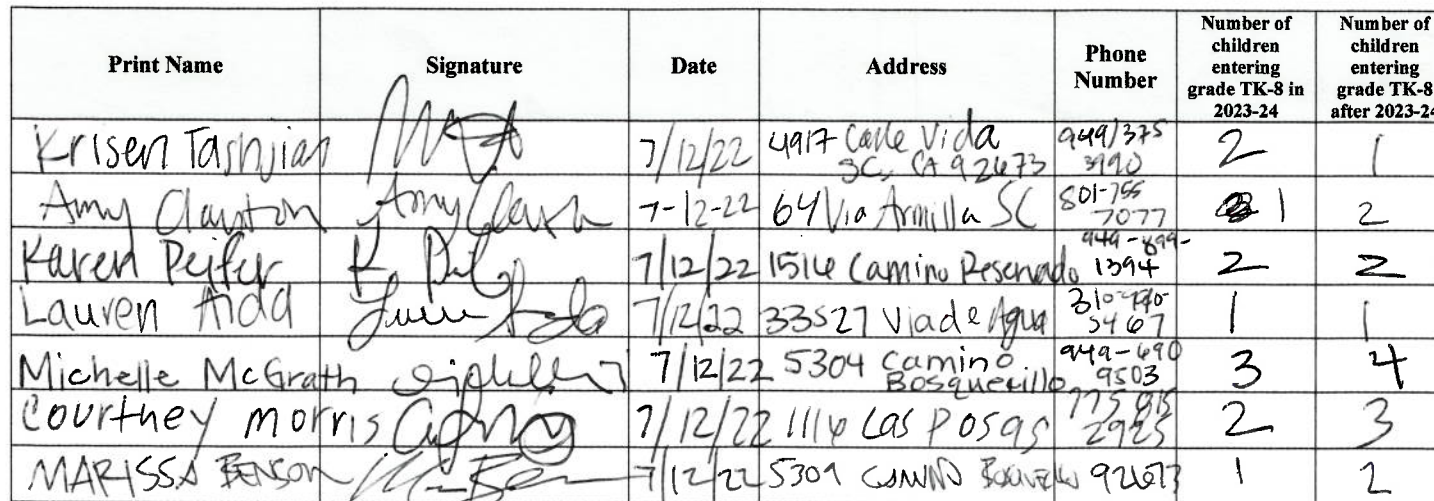 Print Name Signature Date Address Phone Number Number of children entering grade TK-8 in 2023-24 Number of children entering grade TK-8 after 2023-24
Krisen Tashjian 7/12/22 4917 Calle Vida SC, CA 92673 949/375 3990 2 1
Amy Clauston 7-12-22 64 Via Armilla SC 801-755 7077 1 2
Karen Peifer 7/12/22 1516 Camino Reservado 949-899-1394 2 2
Lauren Aida 7/12/22 33527 Via de Agua 5467 1 1
Michelle McGrath 7/12/22 5304 Camino Bosquecillo 949-690 9503 3 4
Courtney Morris 7/12/22 1116 Las Posas 775 2925 2 3
MARISSA BENSON 7/12/22 5309 92673 1 2